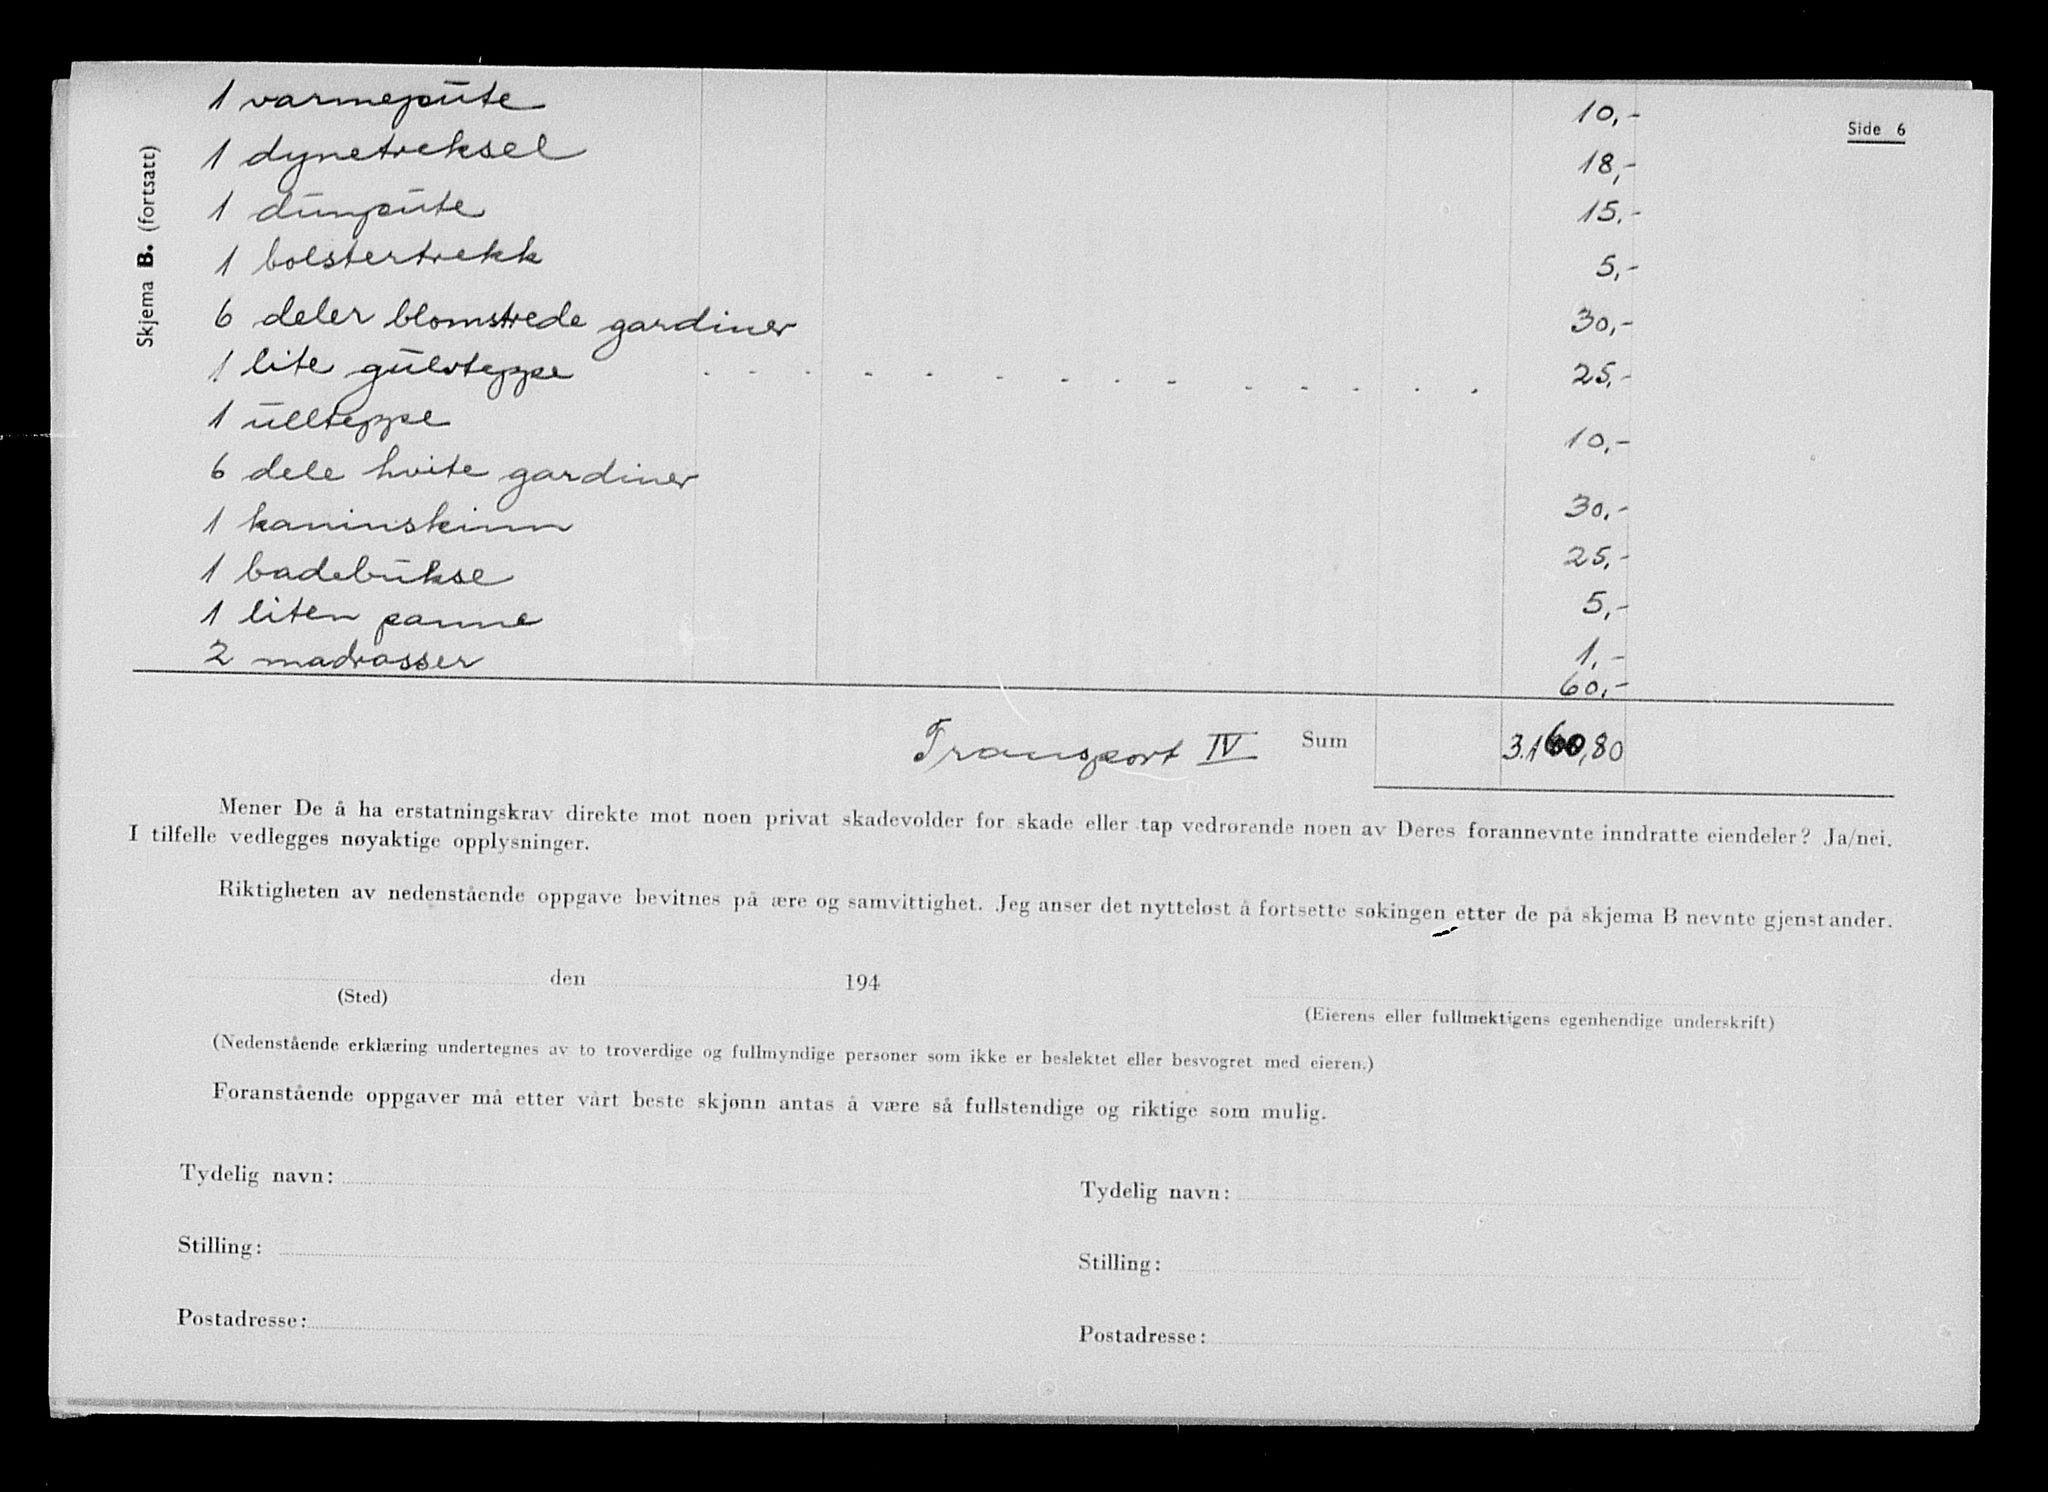 Side 6
Skjema B. (fortsatt)
1 varmepute 10,-
1 dynetreksel 18,-
1 dunpute 15.-
1 bolstertrekk 5,-
6 deler blomstrede gardiner 30,-
1 lite gulvteppe . . . . . . . . . . . . . . 25,-
1 ullteppe 10,-
6 dele hvite gardiner 30,-
1 kaninskinn 25,-
1 badebukse 5,-
1 liten panne 1,-
2 madrasser 60,-
Transport IV Sum 3.160,80
Mener De å ha erstatningskrav direkte mot noen privat skadevolder for skade eller tap vedrørende noen av Deres forannevnte inndratte eiendeler? Ja/nei.
I tilfelle vedlegges nøyaktige opplysninger.
Riktigheten av nedenstående oppgave bevitnes på ære og samvittighet. Jeg anser det nytteløst å fortsette søkingen etter de på skjema B nevnte gjenstander.
den 194
(Sted)
(Eierens eller fullmektigens egenhendige underskrift)
(Nedenstående erklæring undertegnes av to troverdige og fullmyndige personer som ikke er beslektet eller besvogret med eieren.)
Foranstående oppgaver må etter vårt beste skjønn antas å være så fullstendige og riktige som mulig.
Tydelig navn: Tydelig navn:
Stilling: Stilling:
Postadresse: Postadresse: